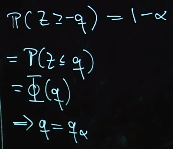 P(Z ≥ -q) = 1-α
= P(Z ≤ q)
= Φ(q)
⇒ q = qα